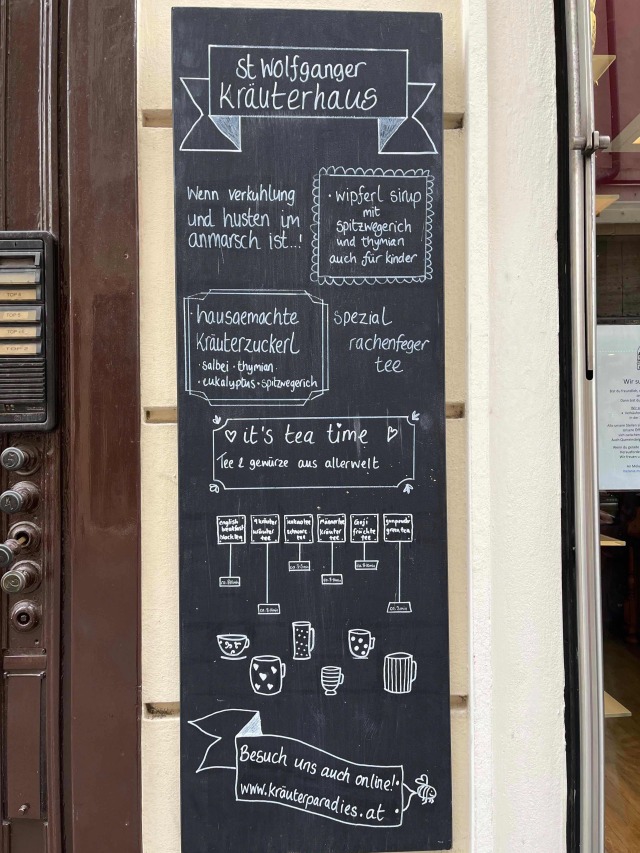 St Wolfganger
Kräuterhaus
Wenn verkühlung
und husten im
anmarsch ist..!
· wipferl sirup
mit
spitzwegerich
und thymian
auch für kinder
· hausgemachte
Kräuterzuckerl
· salbei · thymian ·
· eukalyptus · spitzwegerich
spezial
rachenfeger
tee
♡ it's tea time ♡
Tee & gewürze aus aller welt
english
breakfast
black tea
9 kräuter
wunder
tee
schwarz
tee
Männertee
kräuter
tee
Goji
früchte
tee
gunpowder
green tea
Besuch uns auch online!
www.kräuterparadies.at
Wir su